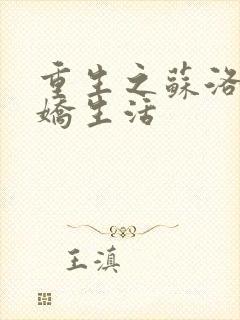 重生之蘇洛
嬌生活
王滇